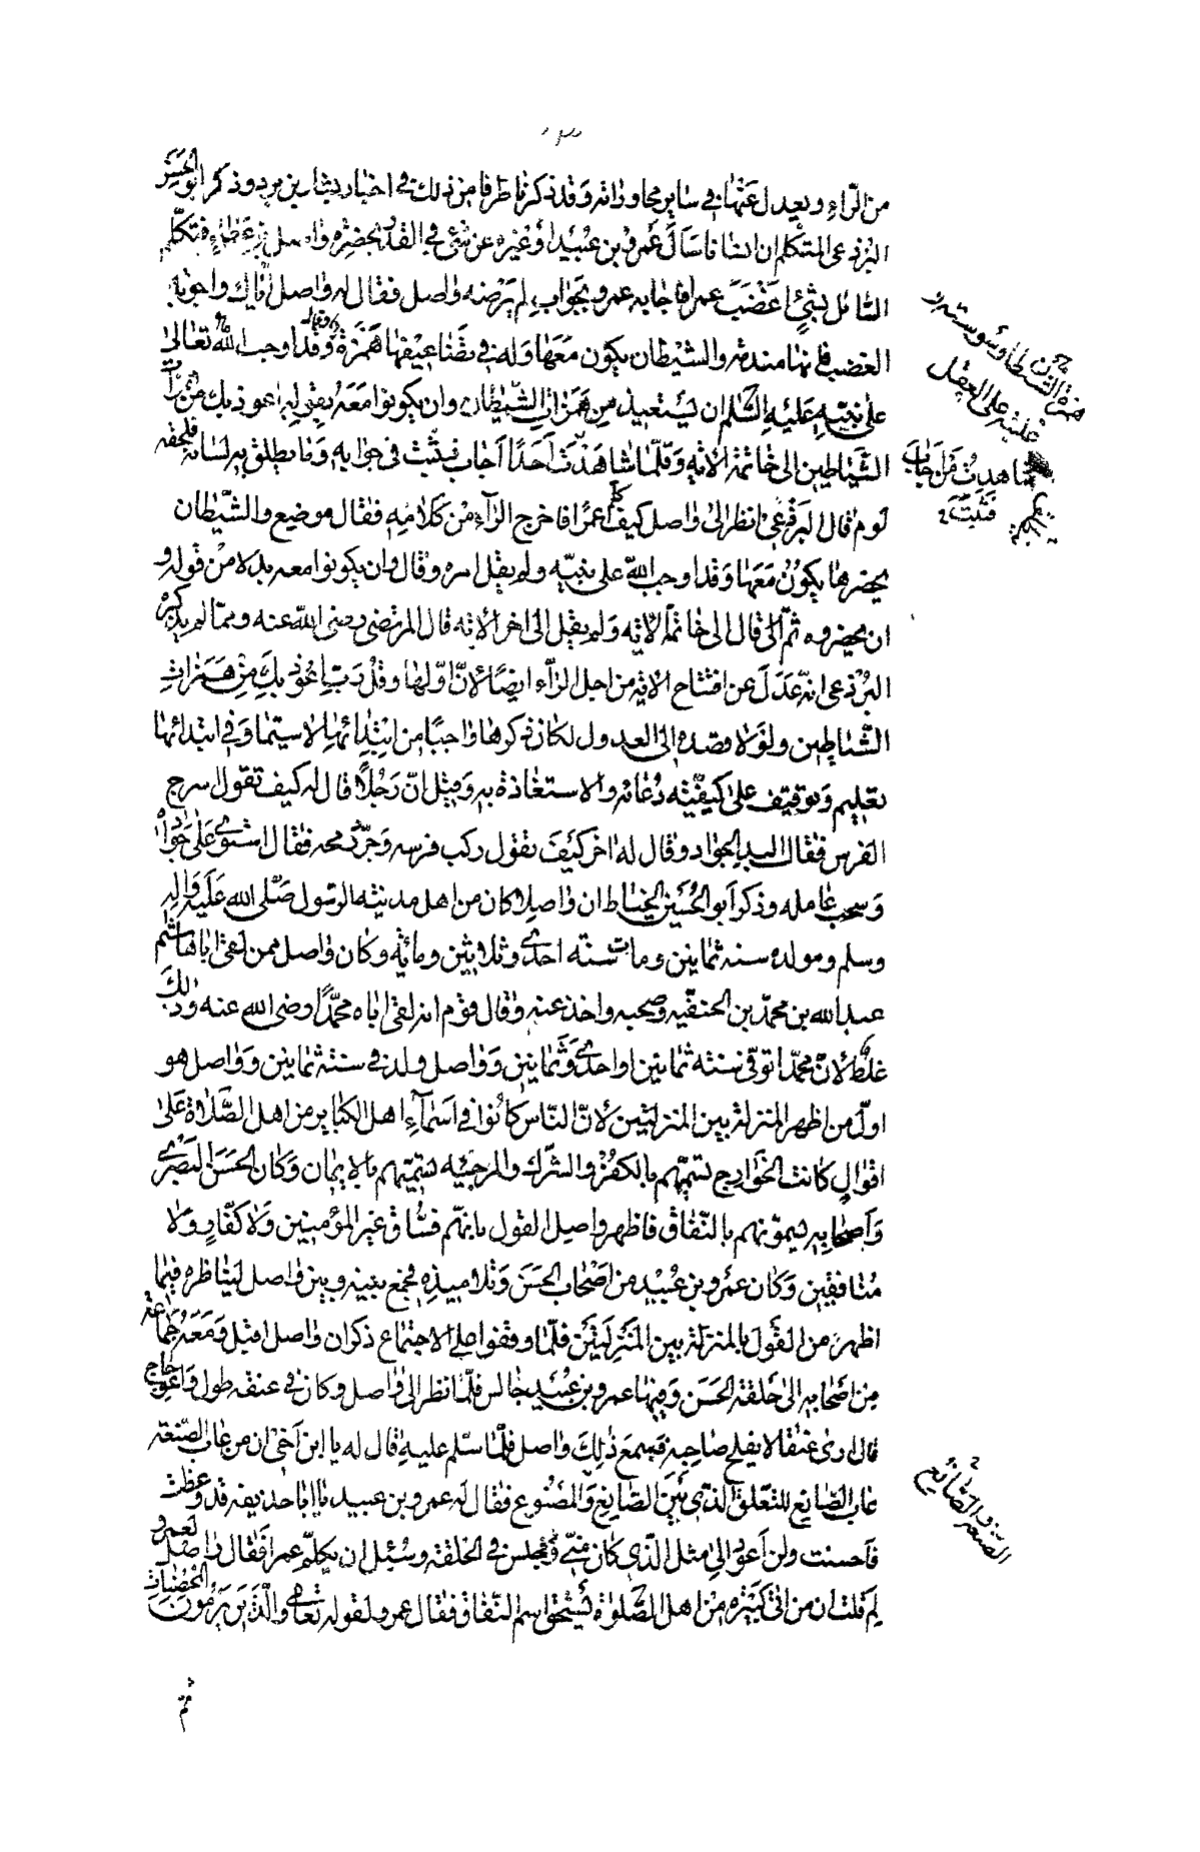 من الرّاء ويعدل عنها في ساير محاوراته وقد ذكرنا طرفا من ذلك في اخبار بشار بن برد وذكر ابو الحسن
البرذعى المتكلم ان انسانا سأل عمرو بن عبيد او غيره عن شئ في القدر بحضرة واصل بن عطاء فتكلم
السّائل بشئ اغضب عمرا فاجابه عمرو بجواب لم يرضه واصل فقال له واصل اياك واجوبة
الغضب فانها مندمة والشيطان يكون معها وله في تضاعيفها همزة وقد اوجب الله تعالى
على نبيّه عليه السّلم ان يستعيذ من همزات الشيطان وان يكونوا معه بقوله اعوذ بك من همزات
الشّياطين الى خاتمة الاية وقلّما شاهدت احدا اجاب فتثبت في جوابه وما يطلق به لسانه فلحقه
لوم قال البرذعى انظر الى واصل كيف كلّم عمرا فاخرج الرّاء من كلامه فقال موضع والشّيطان
يحضرها يكون معها وقد اوجب الله على نبيّه ولم يقل امره وقال وان يكونوا معه بدلا من قوله و
ان يحضروه ثمّ الى قال الى خاتمة الاية ولم يقل الى اخر الاية قال المرتضى رضى الله عنه وممّا لم يذكره
البرذعى انّه عدل عن افتتاح الاية من اجل الرّاء ايضا لانّ اوّلها وقل ربّ اعوذ بك من همزات
الشّياطين ولولا قصده الى العدول لكان ذكرها واجبا من ابتدائها لاسيّما وفي ابتدائها
تعليم وتوقيف على كيفيّة دعائه والاستعاذة به وقيل انّ رجلا قال له كيف تقول سرج
الفرس فقال البد الجواد وقال له اخر كيف تقول ركب فرسه وجرّ رمحه فقال استوى على جواده
وسحب عامله وذكر ابو الحسين الخياط ان واصلا كان من اهل مدينة الرّسول صلّى الله عليه واله
وسلم ومولده سنة ثمانين ومات سنة احدى وثلاثين ومائة وكان واصل ممن لقى ابا هاشم
عبدالله بن محمّد بن الحنفيّة وصحبه واخذ عنه وقال قوم انه لقى اباه محمّدا رضى الله عنه وذلك
غلط لانّ محمّدا توفى سنة ثمانين او احدى وثمانين وواصل ولد في سنة ثمانين وواصل هو
اوّل من اظهر المنزلة بين المنزلتين لانّ النّاس كانوا في اسماء اهل الكباير من اهل الصّلاة على
اقوال كانت الخوارج تسمّيهم بالكفر والشّرك والمرجئة تسميّهم بالايمان وكان الحسن البصرى
واصحابه يسمّونهم بالنّفاق فاظهر واصل القول بانهّم فسّاق غير المؤمنين ولا كفّار ولا
منافقين وكان عمرو بن عبيد من اصحاب الحسن وتلاميذه فجمع بينه وبين واصل ليناظره فيما
اظهر من القول بالمنزلة بين المنزلتين فلمّا وقفوا على الاجتماع ذكر ان واصلا اقبل ومعه جماعة
من اصحابه الى حلقة الحسن وفيها عمرو بن عبيد جالس فلمّا نظر الى واصل وكان في عنقه طول واعوجاج
قال ارى عنقا لا يفلح صاحبها فسمع ذلك واصل فلمّا سلّم عليه قال له يا ابن اخى ان من عاب الصّنعة
عاب الصّانع للتعلّق الّذى بين الصّانع والمصنوع فقال له عمرو بن عبيد يا ابا حذيفة قد وعظت
فاحسنت ولن اعود الى مثل الّذى كان منّى فجلس في الحلقة وسئل ان يكلّم عمرا فقال واصل لعمرو
لم قلت ان من اتى كبيرة من اهل الصّلوة يستحق اسم النّفاق فقال عمرو لقوله تعالى والّذين يرمون المحصنات
ثم
همز الشيطان وسوسته
غلبته على العقل
شاهدت من اجاب
فتثبت
الصنعة والصّانع